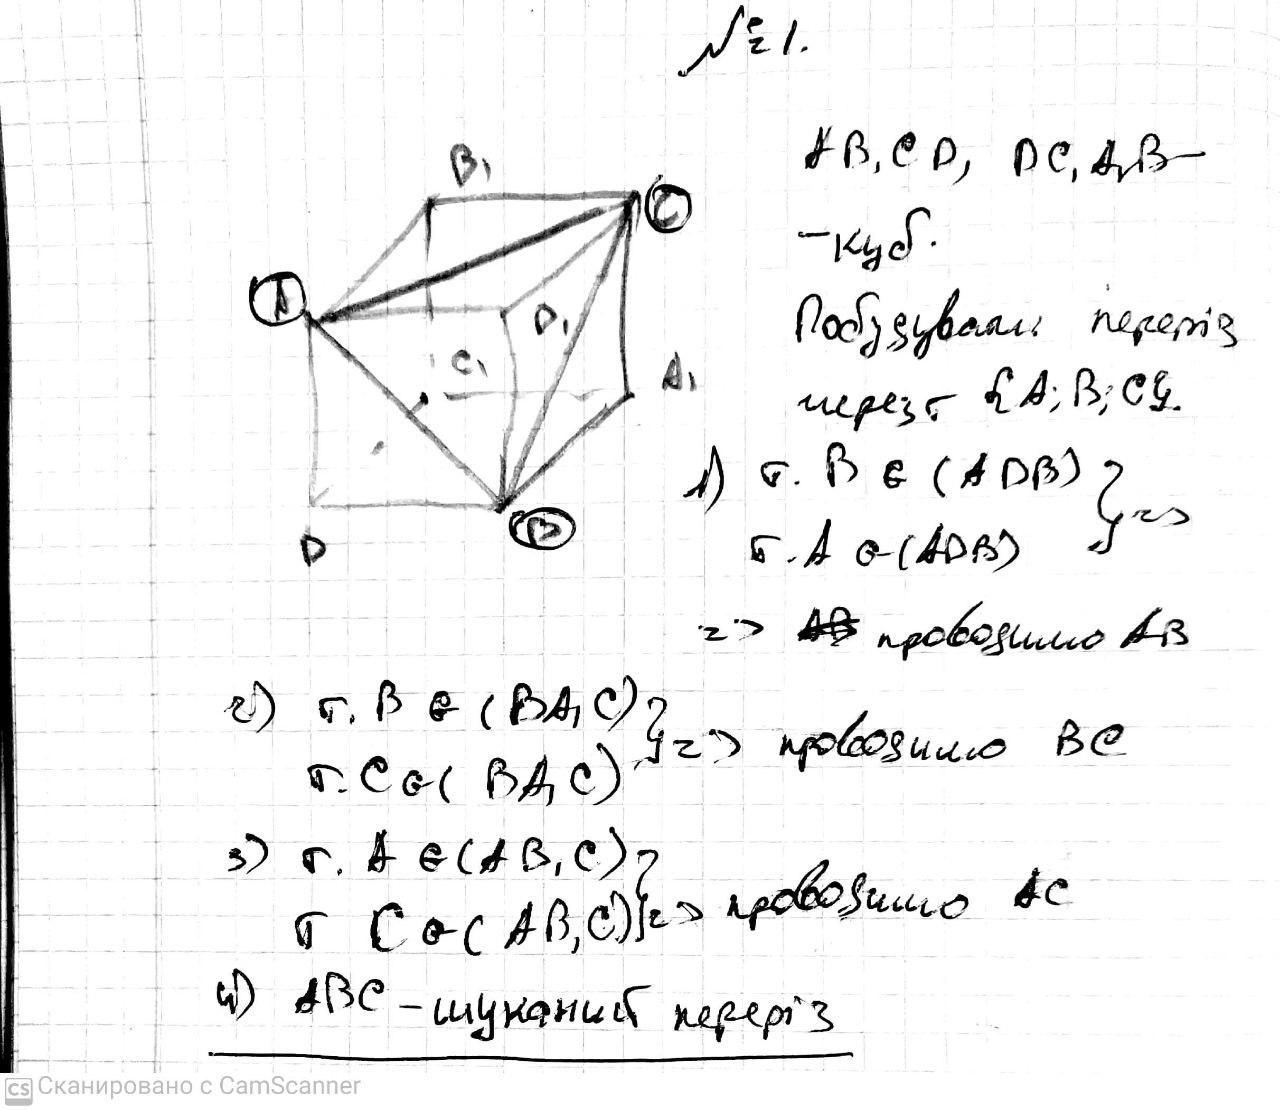 № 1.
B₁
C
A
D₁
C₁
A₁
B
D
AB₁CD₁ DC₁A₁B –
– куб.
Побудувати переріз
через {A; B; C}.
1) т. B ∈ (ADB) }
т. A ∈ (ADB) } =>
=> проводимо AB
2) т. B ∈ (BA₁C) }
т. C ∈ (BA₁C) } => проводимо BC
3) т. A ∈ (AB₁C) }
т C ∈ (AB₁C) } => проводимо AC
4) ABC – шуканий переріз
CS Сканировано с CamScanner